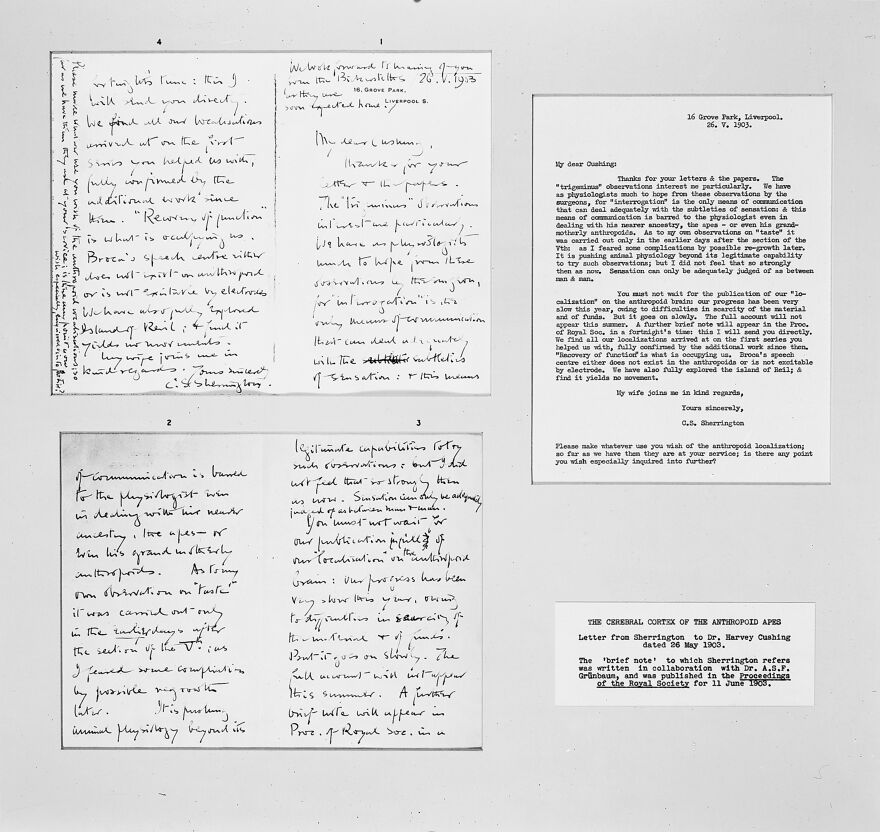 4
hill send you directly.
We find all our localisations
arrived at on the first
series you helped us with,
fully confirmed by the
additional work since
then. "Recovery of function"
is what is occupying us.
Broca's speech centre either
does not exist in anthropoid
or is not excitable by electrode
We have also fully explored
Island of Reil; & find it
yields no movements.
My wife joins me in
kind regards. Yours sincerely
C. S. Sherrington.
Please make whatever use you wish of the anthropoid localization; so
far as we have them they are at your service; is there any point you
wish especially inquired into further?
1
We look forward to hearing of you
from the Bickersteths 26. V. 1903
for they are
16, GROVE PARK,
soon expected home!
LIVERPOOL S.
My dear Cushing,
Thanks for your
letter & the papers.
The "trigeminus" observations
interest me particularly.
We have as physiologists
much to hope from these
observations by the surgeon,
for "interrogation" is the
only means of communication
that can deal adequately
with the subtleties
of sensation: & this means
2
of communication is barred
to the physiologist even
in dealing with his nearer
ancestry, the apes - or
even his grandmotherly
anthropoids. As to my
own observation on "taste"
it was carried out only
in the earlier days after
the section of the Vth; as
I feared some complication
by possible regrowth
later. It is pushing
animal physiology beyond its
3
legitimate capabilities to try
such observations; but I did
not feel that so strongly then
as now. Sensation can only be adequately
judged of as between man & man.
You must not wait for
our publication in full of
our "localisation" on the anthropoid
brain: our progress has been
very slow this year, owing
to difficulties in scarcity of
the material & of funds.
But it goes on slowly. The
full account will not appear
this summer. A further
brief note will appear in
Proc. of Royal Soc. in a
fortnight's time: this I
16 Grove Park, Liverpool.
26. V. 1903.
My dear Cushing:
Thanks for your letters & the papers. The
"trigeminus" observations interest me particularly. We have
as physiologists much to hope from these observations by the
surgeons, for "interrogation" is the only means of communication
that can deal adequately with the subtleties of sensation: & this
means of communication is barred to the physiologist even in
dealing with his nearer ancestry, the apes - or even his grand-
motherly anthropoids. As to my own observations on "taste" it
was carried out only in the earlier days after the section of the
Vth: as I feared some complications by possible re-growth later.
It is pushing animal physiology beyond its legitimate capability
to try such observations; but I did not feel that so strongly
then as now. Sensation can only be adequately judged of as between
man & man.
You must not wait for the publication of our "lo-
calization" on the anthropoid brain: our progress has been very
slow this year, owing to difficulties in scarcity of the material
and of funds. But it goes on slowly. The full account will not
appear this summer. A further brief note will appear in the Proc.
of Royal Soc. in a fortnight's time: this I will send you directly.
We find all our localizations arrived at on the first series you
helped us with, fully confirmed by the additional work since then.
"Recovery of function" is what is occupying us. Broca's speech
centre either does not exist in the anthropoids or is not excitable
by electrode. We have also fully explored the island of Reil; &
find it yields no movement.
My wife joins me in kind regards,
Yours sincerely,
C.S. Sherrington
Please make whatever use you wish of the anthropoid localization;
so far as we have them they are at your service; is there any point
you wish especially inquired into further?
THE CEREBRAL CORTEX OF THE ANTHROPOID APES
Letter from Sherrington to Dr. Harvey Cushing
dated 26 May 1903.
The 'brief note' to which Sherrington refers
was written in collaboration with Dr. A.S.F.
Grünbaum, and was published in the Proceedings
of the Royal Society for 11 June 1903.